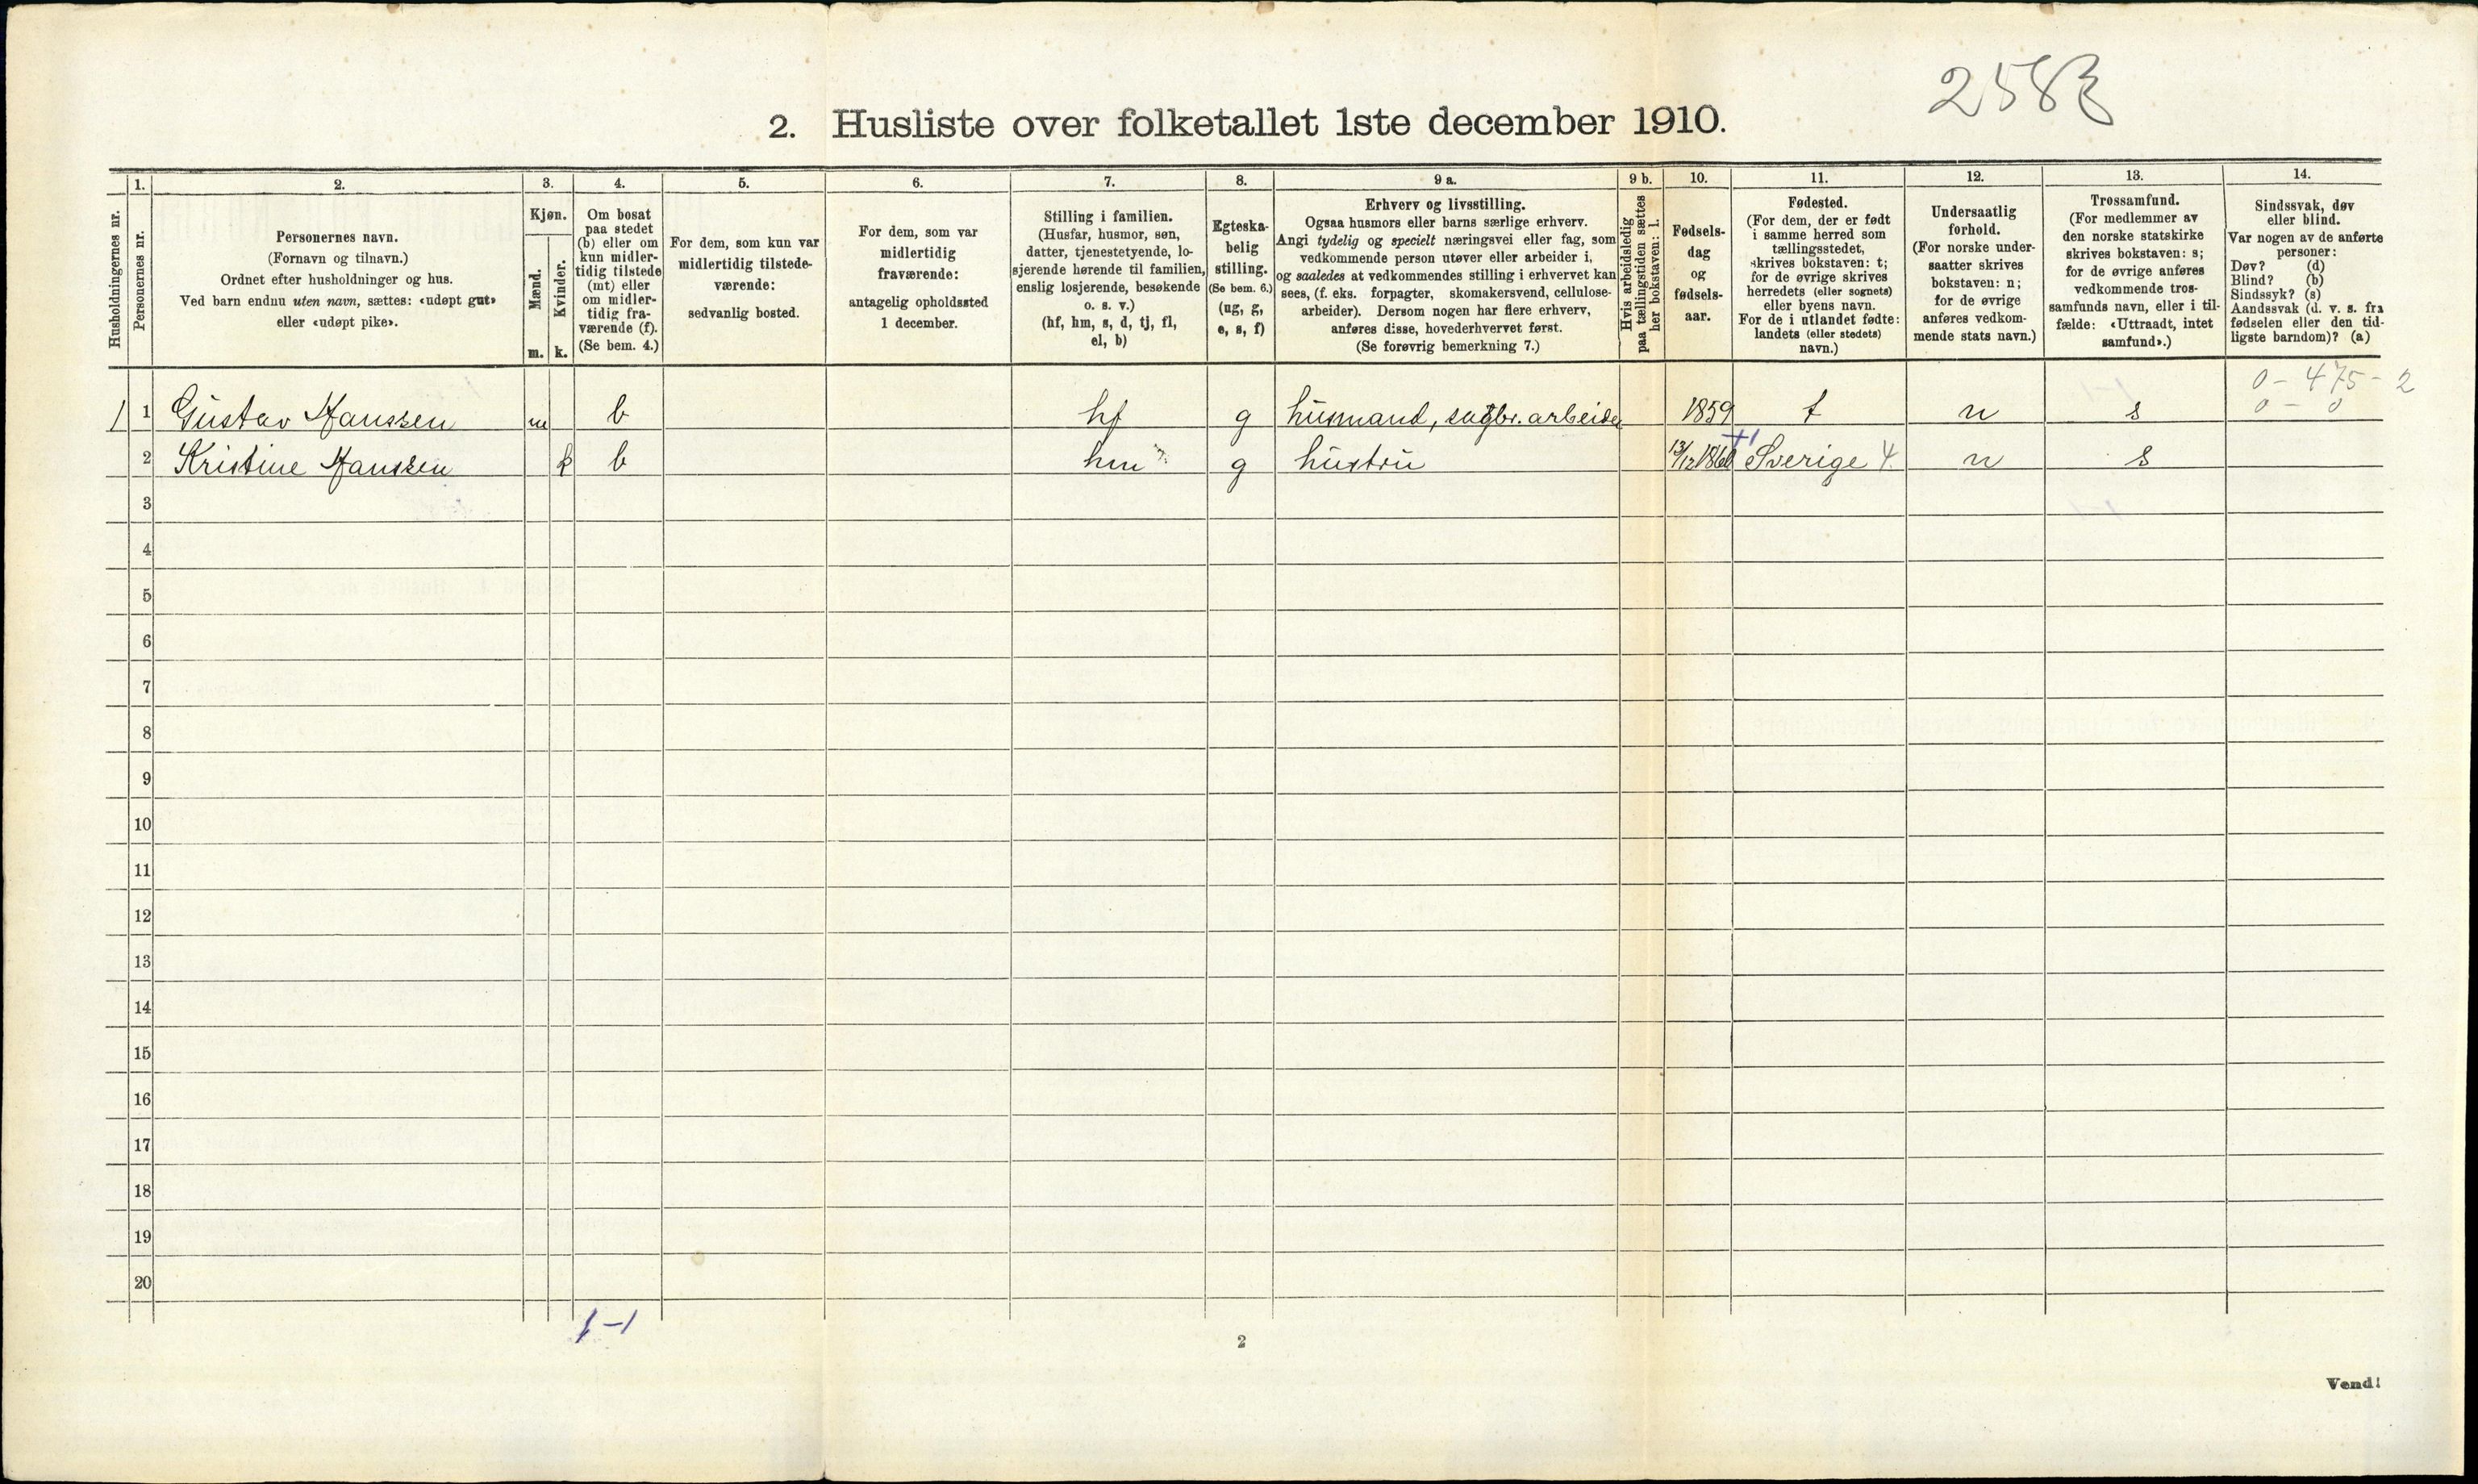 258
2. Husliste over folketallet 1ste december 1910.
1. 2. 3. 4. 5. 6. 7. 8. 9 a. 9 b. 10. 11. 12. 13. 14.
Husholdningernes nr.
Personernes nr.
Personernes navn.
(Fornavn og tilnavn.)
Ordnet efter husholdninger og hus.
Ved barn endnu uten navn, sættes: «udøpt gut»
eller «udøpt pike».
Kjøn.
Mænd.
Kvinder.
m. k.
Om bosat
paa stedet
(b) eller om
kun midler-
tidig tilstede
(mt) eller
om midler-
tidig fra-
værende (f).
(Se bem. 4.)
For dem, som kun var
midlertidig tilstede-
værende:
sedvanlig bosted.
For dem, som var
midlertidig
fraværende:
antagelig opholdssted
1 december.
Stilling i familien.
(Husfar, husmor, søn,
datter, tjenestetyende, lo-
sjerende hørende til familien,
enslig losjerende, besøkende
o. s. v.)
(hf, hm, s, d, tj, fl,
el, b)
Egteska-
belig
stilling.
(Se bem. 6.)
(ug, g,
e, s, f)
Erhverv og livsstilling.
Ogsaa husmors eller barns særlige erhverv.
Angi tydelig og specielt næringsvei eller fag, som
vedkommende person utøver eller arbeider i,
og saaledes at vedkommendes stilling i erhvervet kan
sees, (f. eks. forpagter, skomakersvend, cellulose-
arbeider). Dersom nogen har flere erhverv,
anføres disse, hovederhvervet først.
(Se forøvrig bemerkning 7.)
Hvis arbeidsledig
paa tællingstiden sættes
her bokstaven: l.
Fødsels-
dag
og
fødsels-
aar.
Fødested.
(For dem, der er født
i samme herred som
tællingsstedet,
skrives bokstaven: t;
for de øvrige skrives
herredets (eller sognets)
eller byens navn.
For de i utlandet fødte:
landets (eller stedets)
navn.)
Undersaatlig
forhold.
(For norske under-
saatter skrives
bokstaven: n;
for de øvrige
anføres vedkom-
mende stats navn.)
Trossamfund.
(For medlemmer av
den norske statskirke
skrives bokstaven: s;
for de øvrige anføres
vedkommende tros-
samfunds navn, eller i til-
fælde: «Uttraadt, intet
samfund».)
Sindssvak, døv
eller blind.
Var nogen av de anførte
personer:
Døv? (d)
Blind? (b)
Sindssyk? (s)
Aandssvak (d. v. s. fra
fødselen eller den tid-
ligste barndom)? (a)
0 - 475 - 2
0 - 0
1 1 Gustav Hanssen m b hf g husmand, sagbr. arbeider 1859 t n s
2 Kristine Hanssen k b hm g hustru 13/12 1860 Sverige 4. n s
3
4
5
6
7
8
9
10
11
12
13
14
15
16
17
18
19
20
1-1
2
Vend!